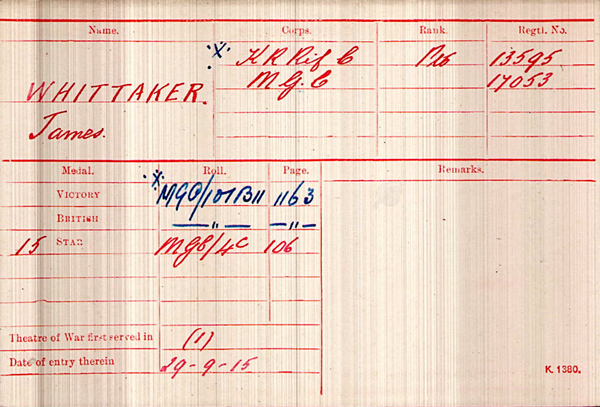 Name. Corps. Rank. Regtl. No.
X K R Rif C Pte 13595
WHITTAKER. M. G. C 17053
James.
Medal. Roll. Page. Remarks.
VICTORY X MGC/101B11 1163
BRITISH —"— —"—
15 STAR MGC/4C 106
Theatre of War first served in (1)
Date of entry therein 29-9-15
K. 1380.